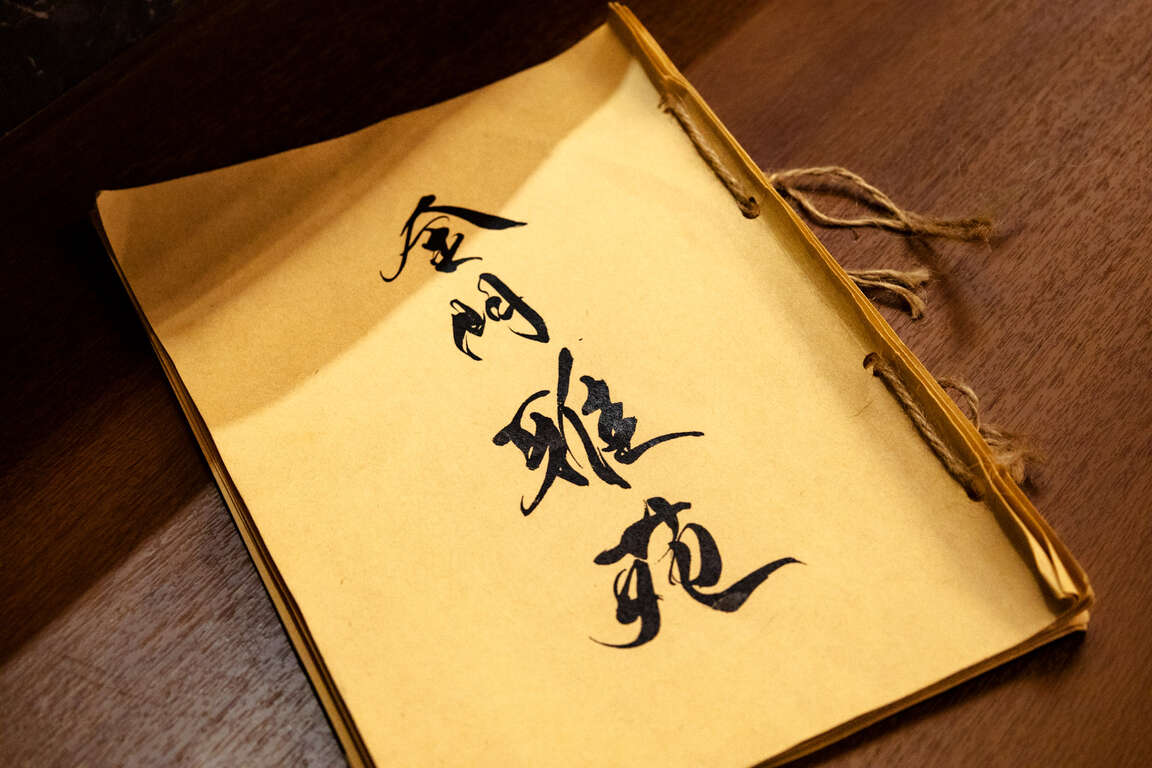 金門雅苑